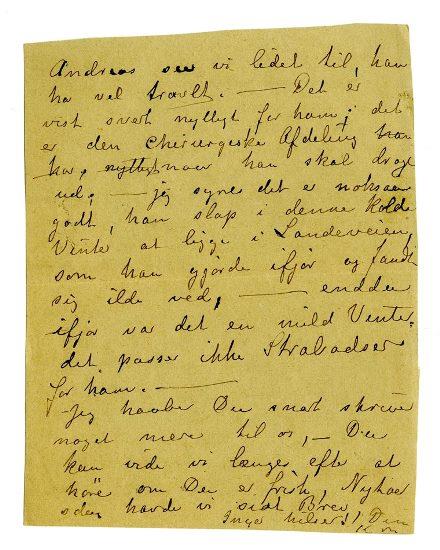 Andreas see vi lidet til, han
ha vel travlt. — Det er
vist svært nyttigt for ham; det
er den cherurgeske Afdeling han
har, nyttigt naar han skal drage
ud, — jeg synes det er noksaa
godt, han slap i denne kolde
Vinter at ligge i Landeveien,
som han gjorde ifjor og fandt
sig ilde ved, — endda
ifjor var det en mild Venter.
det passer ikke Strabadser
for ham. —
Jeg haaber Du snart skriver
noget mere til os, — Du
kan vide vi længes efte at
höre om Du er frisk, Nyhaer
sden havde vi sidst Brev
Inga hilser! Din